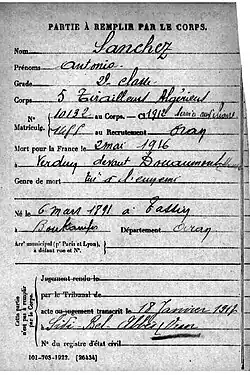 PARTIE À REMPLIR PAR LE CORPS.
Nom Sanchez
Prénoms Antonio
Grade 2e classe
Corps 5 Tirailleurs Algériens
N° 10132 au Corps. — Cl. 1912
Matricule. au Recrutement Oran
Mort pour la France le 2 mai 1916
à Verdun devant Douaumont
Genre de mort Tué à l'ennemi
Né le 6 mars 1891 à Tassin
Département Oran
Arr' municipal (pr Paris et Lyon),
à défaut rue et N°.
Cette partie
n'est pas à remplir
par le Corps.
Jugement rendu le
par le Tribunal de
acte ou jugement transcrit le 18 Janvier 1917
à Sidi-Bel-Abbès Oran
N° du registre d'état civil
101-708-1922. [26434]